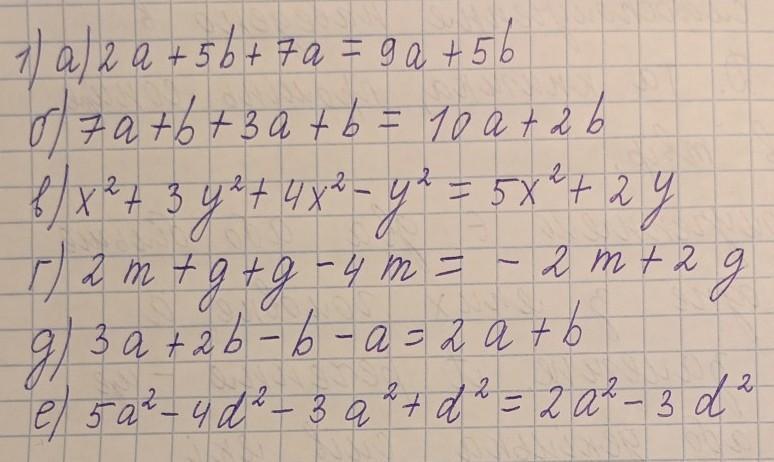 1) а) 2a + 5b + 7a = 9a + 5b
б) 7a + b + 3a + b = 10a + 2b
в) x² + 3y² + 4x² - y² = 5x² + 2y
г) 2m + g + g - 4m = - 2m + 2g
д) 3a + 2b - b - a = 2a + b
е) 5a² - 4d² - 3a² + d² = 2a² - 3d²